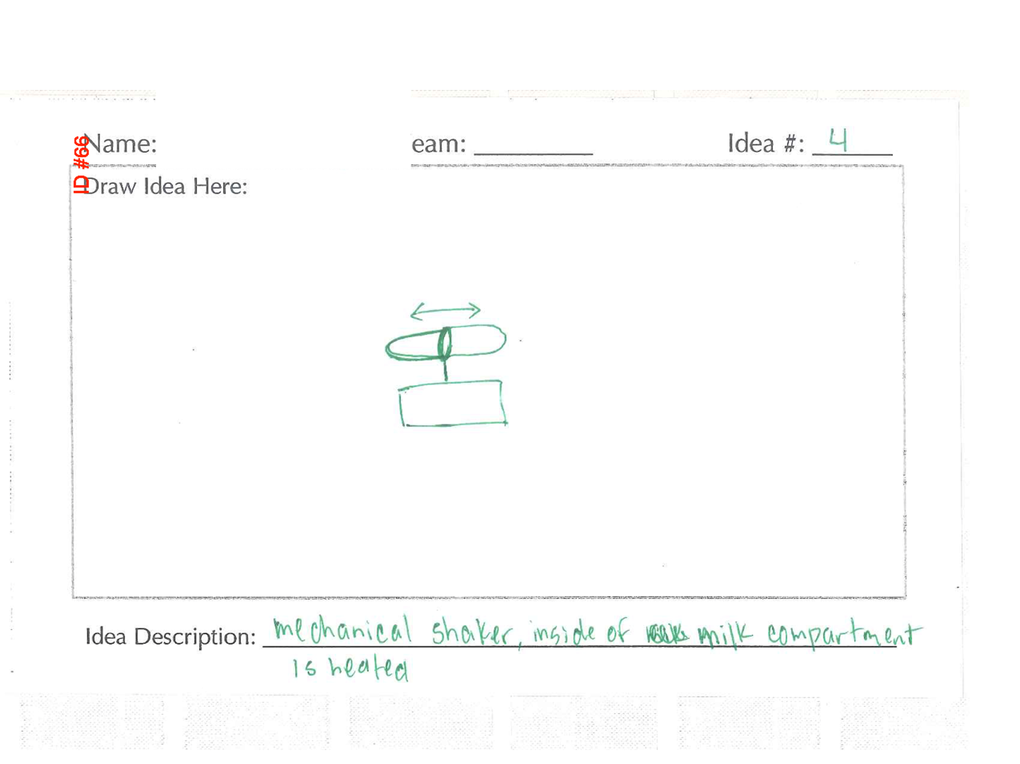 ID #66
Name: eam: Idea #: 4
Draw Idea Here:
Idea Description: mechanical shaker, inside of milk compartment
is heated